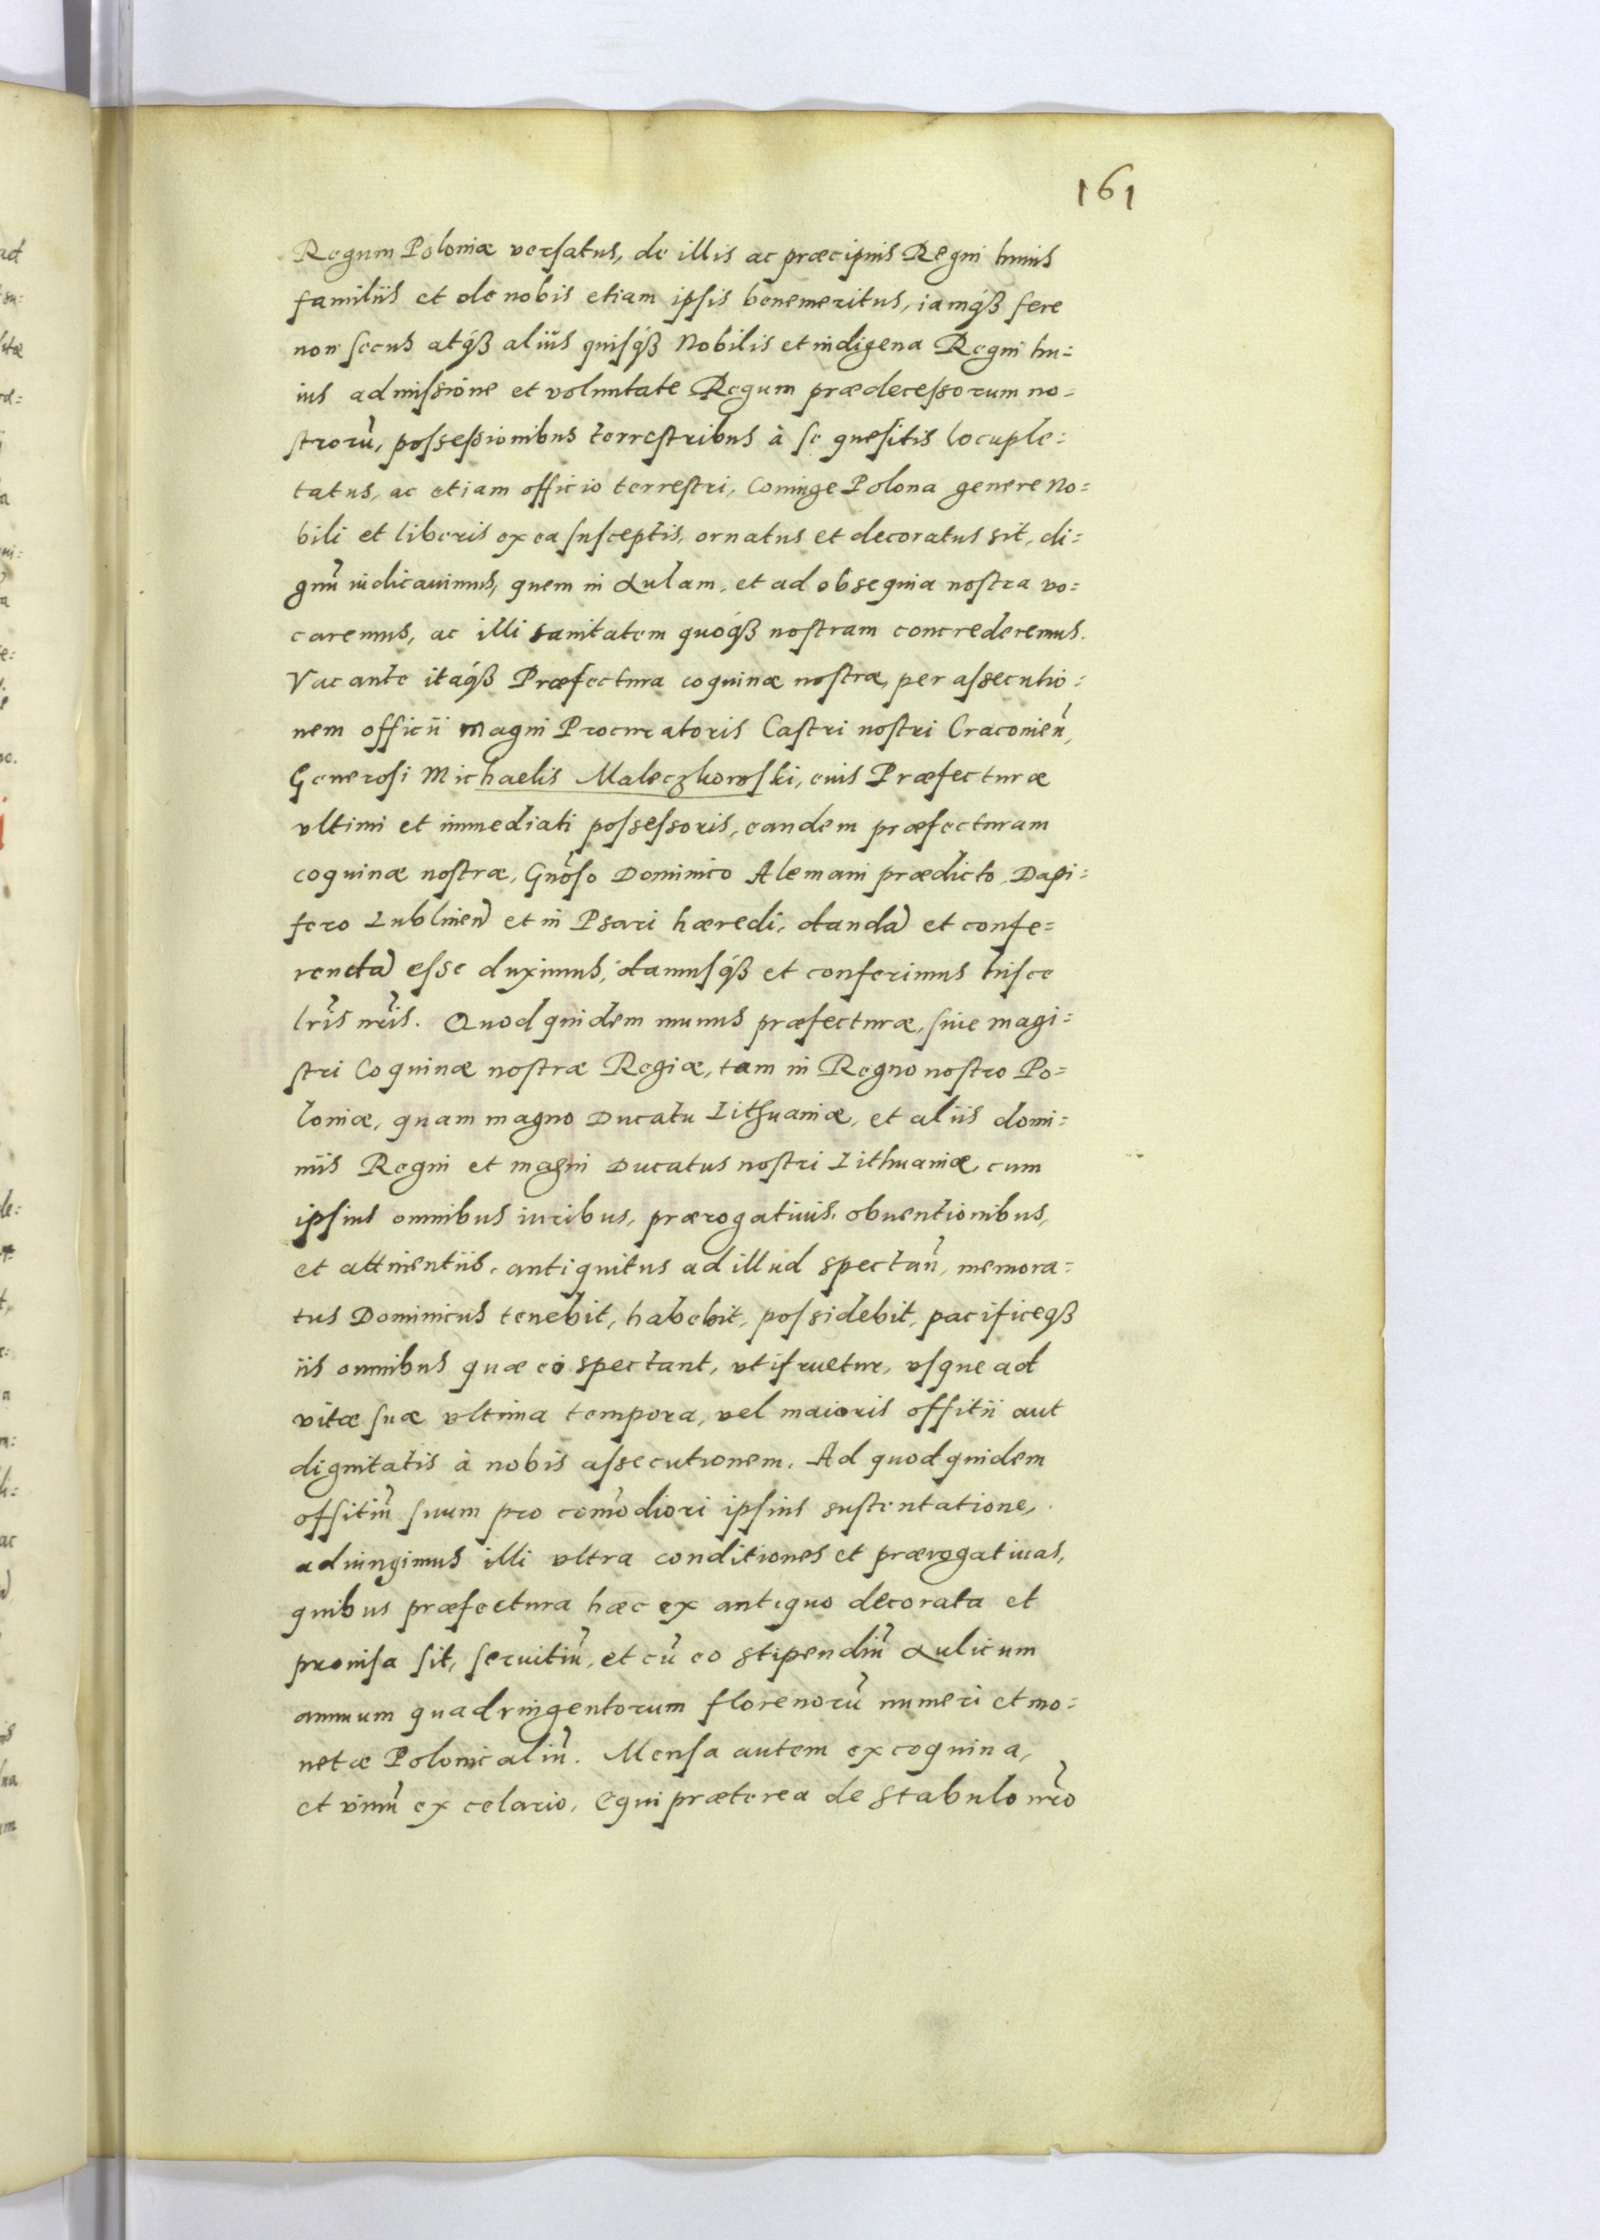 161
Regum Poloniæ versatus, de illis ac præcipuis Regni huius
familiis et de nobis etiam ipsis benemeritus, iamqȝ fere
non secus atqȝ alius quisqȝ Nobilis et indigena Regni hu=
ius admissione et voluntate Regum prædecessorum no=
strorū, possessionibus terrestribus à se quesitis locuple=
tatus, ac etiam officio terrestri, Coniuge Polona genere No=
bili et liberis ex ea susceptis, ornatus et decoratus sit, di=
gnū iudicauimus, quem in Aulam, et ad obsequia nostra vo=
caremus, ac illi sanitatem quoqȝ nostram concrederemus.
Vacante itaqȝ Præfectura coquinæ nostræ, per assecutio=
nem officii magni Procuratoris Castri nostri Cracouień,
Generosi Michaelis Maleczkowski, euis Præfecturæ
vltimi et immediati possessoris, eandem præfecturam
coquinæ nostræ, Gnōso Dominico Alemani prædicto, Dapi=
fero Lublineń et in Psari hæredi, dandā et confe=
rendā esse duximus, damusqȝ et conferimus hisce
lr̄is nr̄is. Quod quidem munus præfecturæ, siue magi=
stri Coquinæ nostræ Regiæ, tam in Regno nostro Po=
loniæ, quam magno Ducatu Lithuaniæ, et aliis domi=
niis Regni et magni Ducatus nostri Lithuaniæ, cum
ipsius omnibus iuribus, prærogatiuis, obuentionibus,
et attinentiis, antiquitus ad illud spectań, memora=
tus Dominicus tenebit, habebit, possidebit, pacificeqȝ
iis omnibus quæ eò spectant, vtifruetur, vsque ad
vitæ suæ vltima tempora, vel maioris offitii aut
dignitatis à nobis assecutionem. Ad quod quidem
offitiū suum pro com̄odiori ipsius sustentatione,
adiungimus illi vltra conditiones et prærogatiuas,
quibus præfectura hæc ex antiquo decorata et
prouisa sit, seruitiū, et cū eo stipendiū Aulicum
annuum quadringentorum florenorū numeri et mo=
netæ Polonicaliū. Mensa autem ex coquina,
et vinū ex celario, Equi præterea de stabulo nr̄o